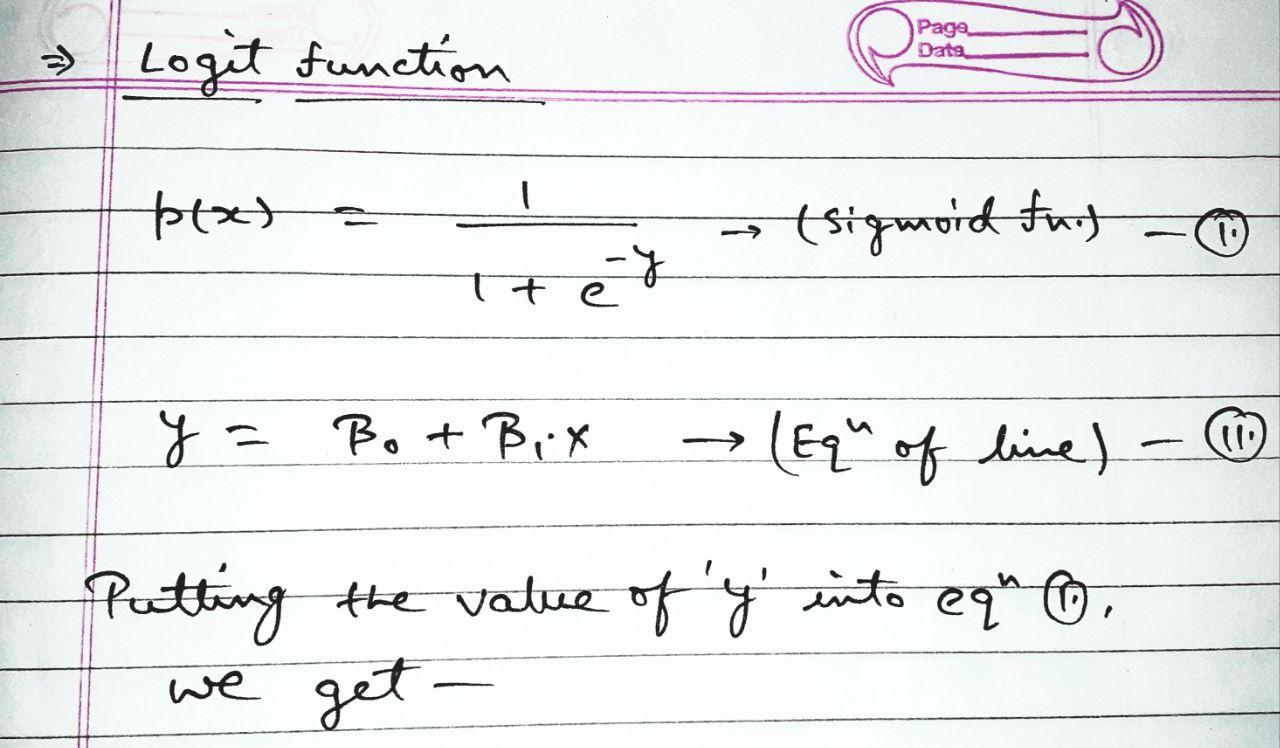 Page
Date
⇒ Logit function
p(x) = 1 / (1 + e^-y) → (sigmoid fn.) – (i.)
y = B₀ + B₁.x → (Eqⁿ of line) – (ii.)
Putting the value of 'y' into eqⁿ (i.),
we get –